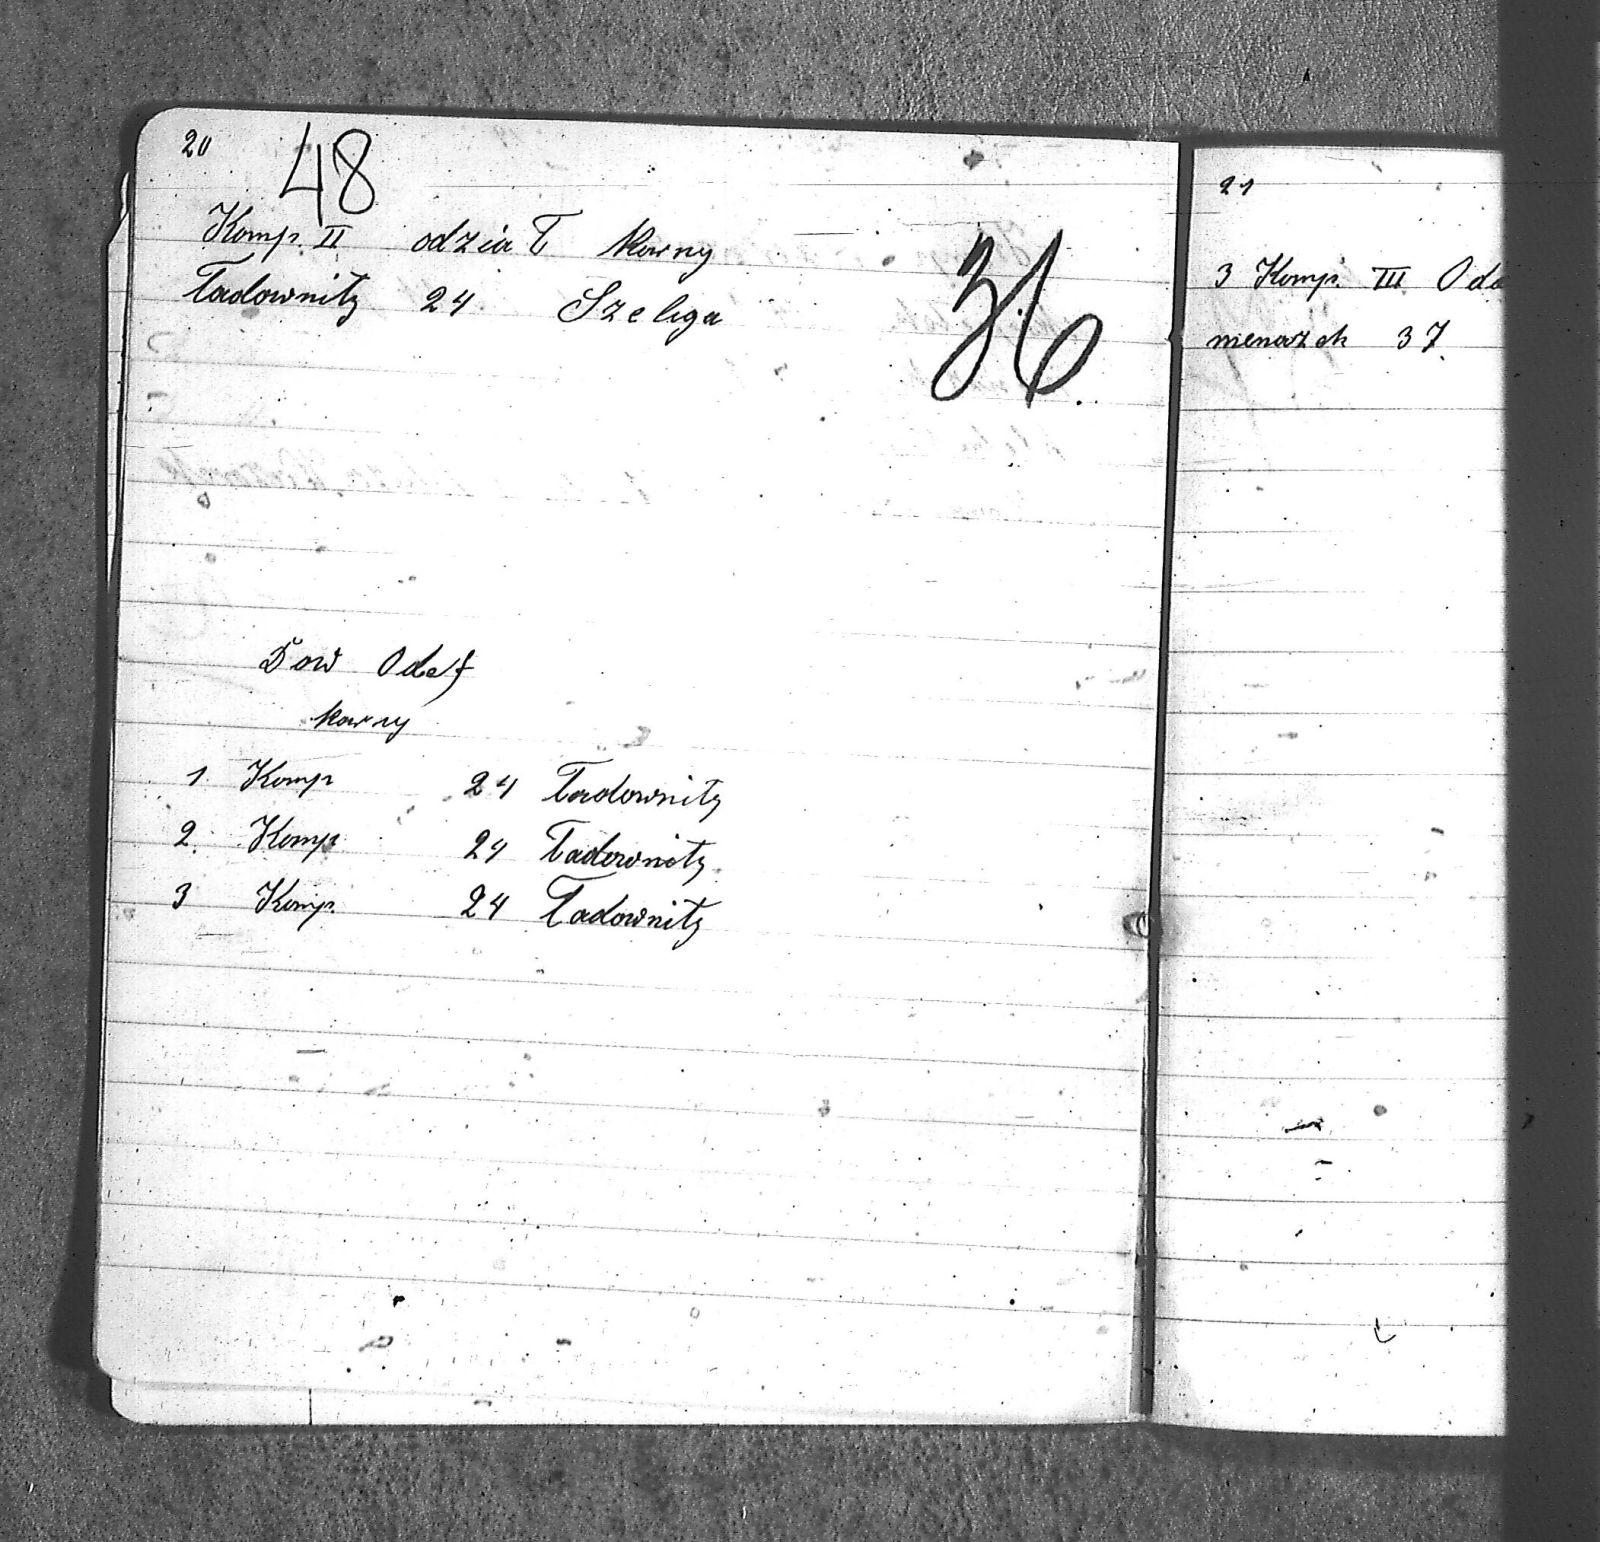 20
48
Komp. II odział karny
Ładownitz 24 Szeliga
36
Dow Odef
karny
1 Komp 24 Ładownitz
2. Komp. 24 Ładownitz
3 Komp. 24 Ładownitz
21
3 Komp. III Odd
menazek 37